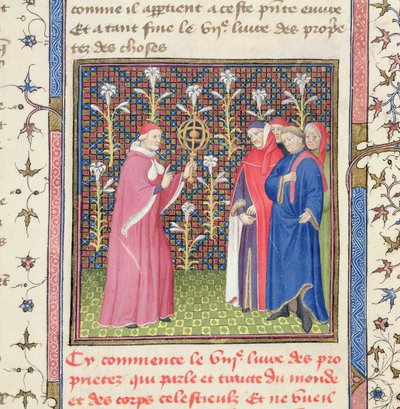 comme il apptient a ceste pnte euure
Et a tant fine le viiͤ liure des propͤ
tez des choses
Cy commence le viiiͤ liure des pro
prietez qui parle et traicte du monde
et des corps celestieulx Et ne vueil